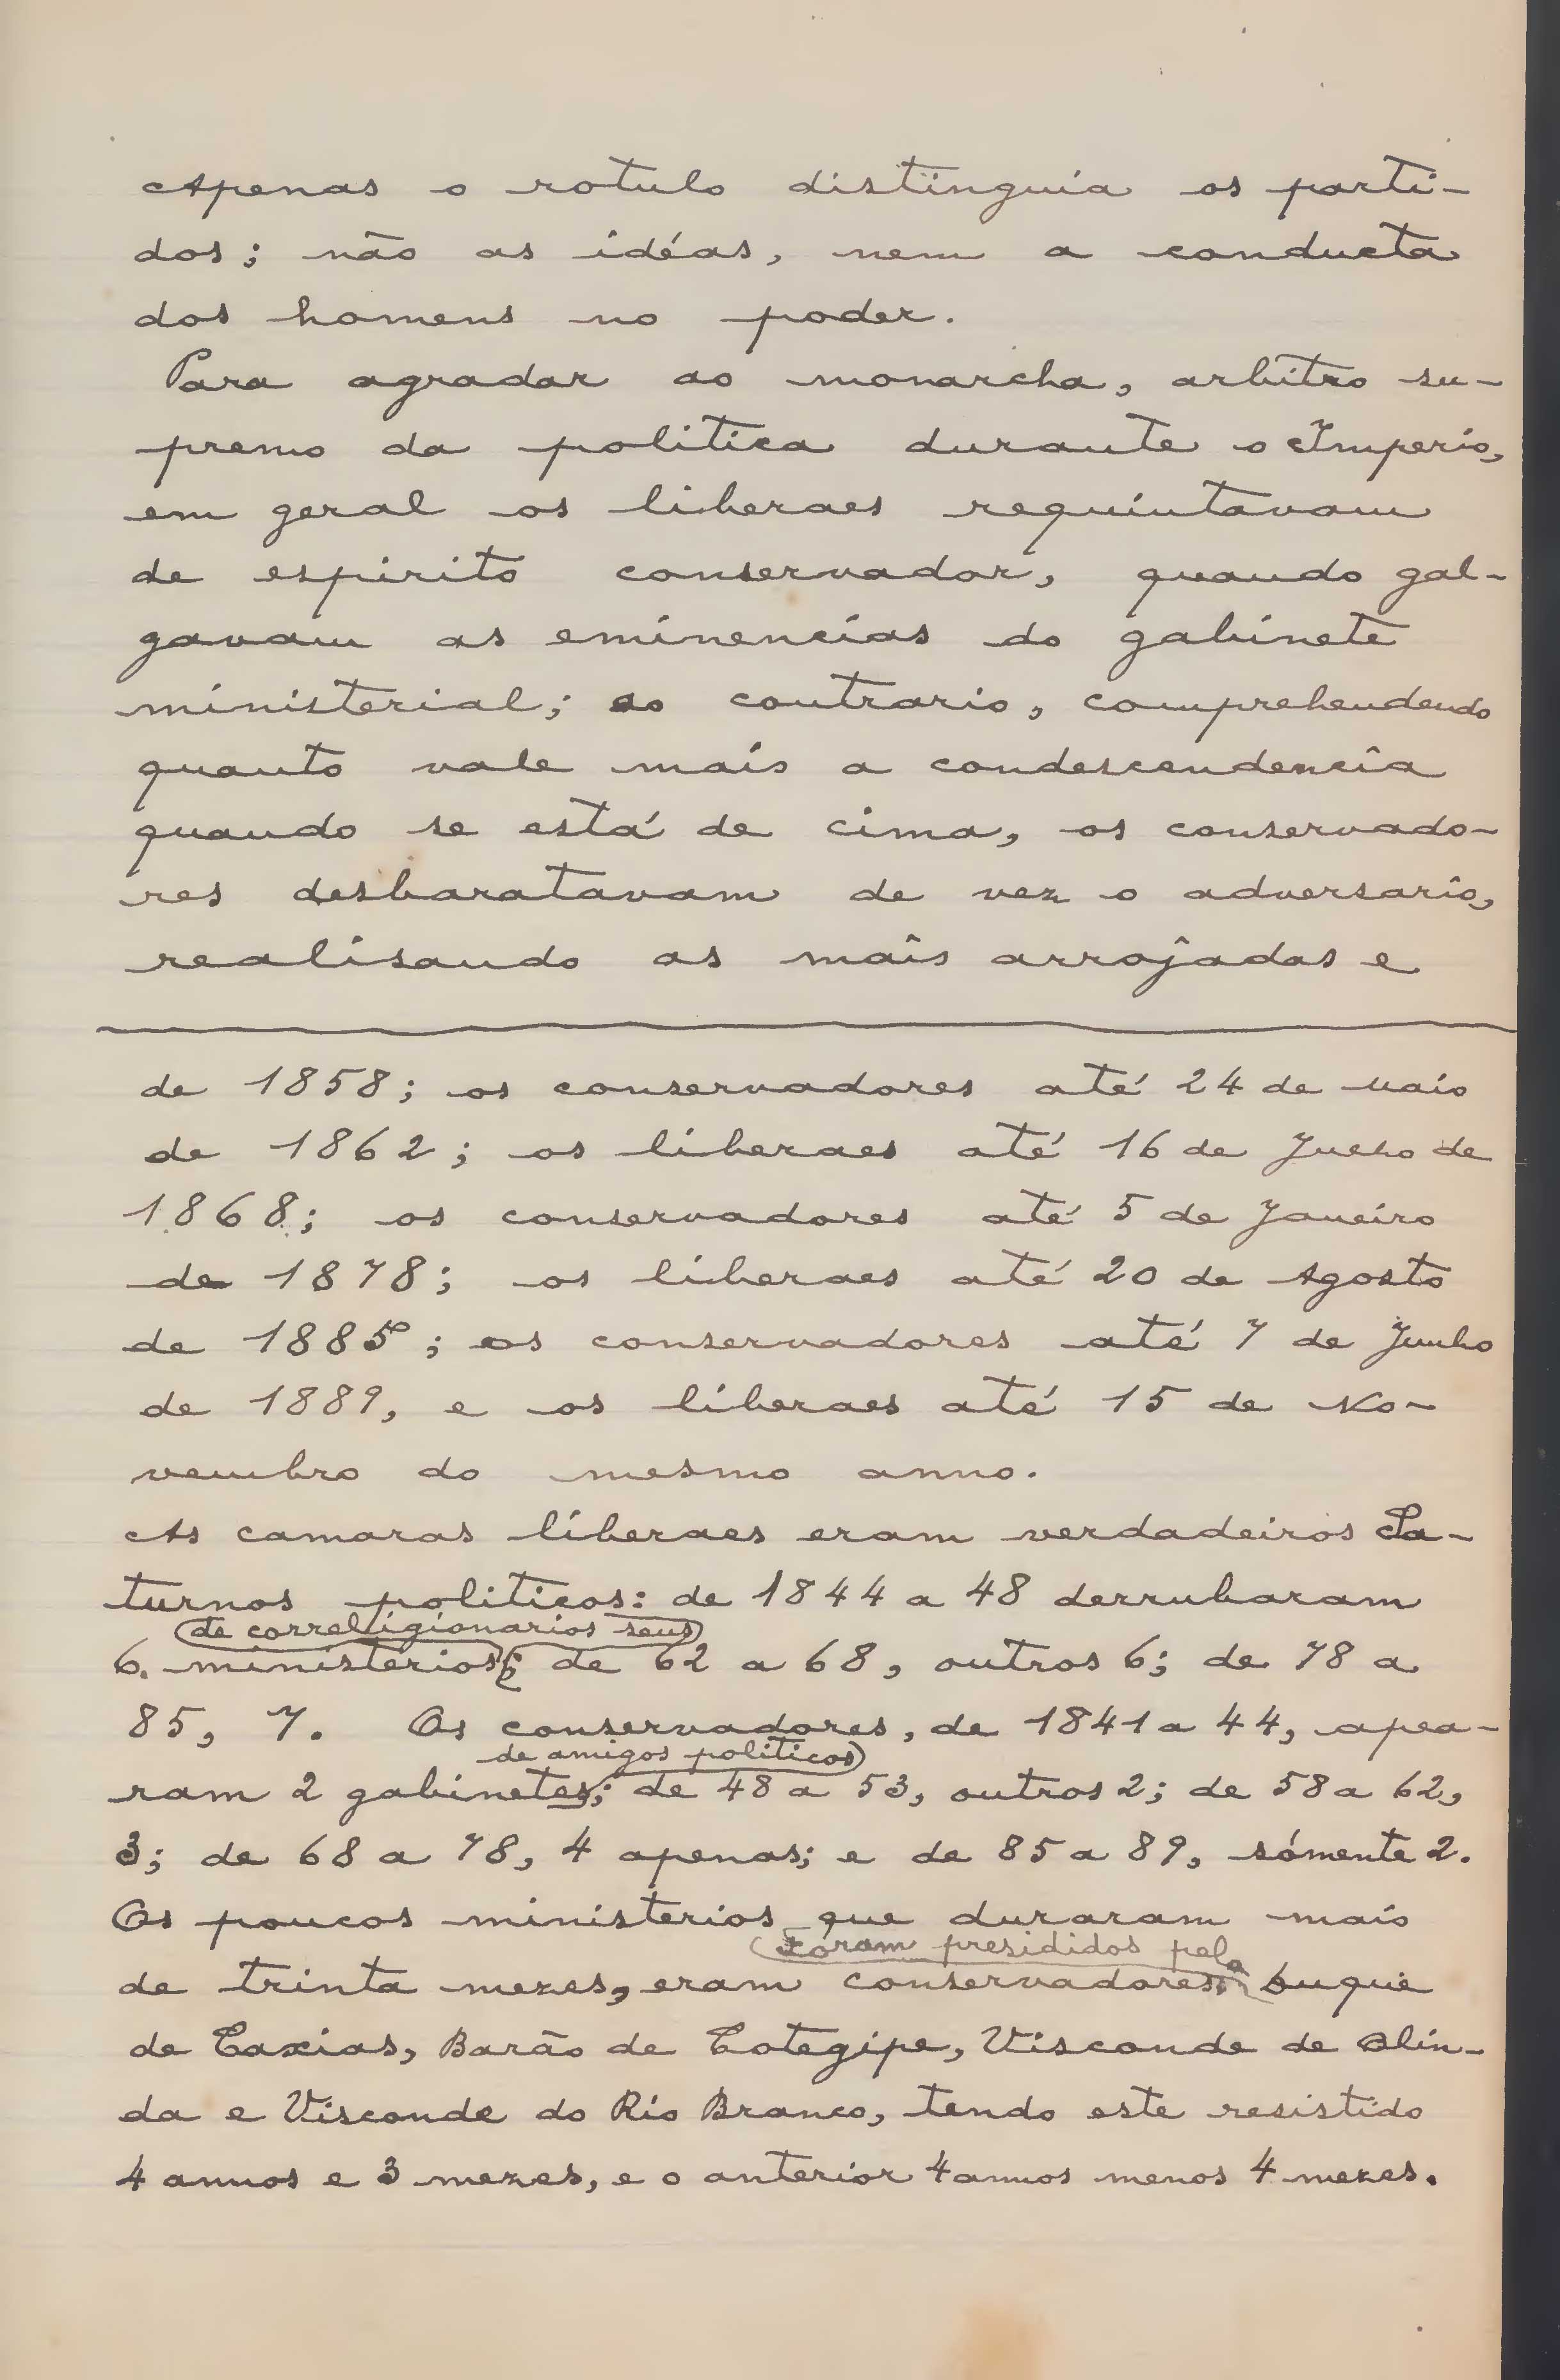 Apenas o rotulo distinguia os parti-
dos; não as idéas, nem a conducta
dos homens no poder.
Para agradar ao monarcha, arbitro su-
premo da politica durante o Imperio,
em geral os liberaes requintavam
de espirito conservador, quando gal-
gavam as eminencias do gabinete
ministerial; ao contrario, comprehendendo
quanto vale mais a condescendencia
quando se está de cima, os conservado-
res desbaratavam de vez o adversario,
realisando as mais arrojadas e
de 1858; os conservadores até 24 de Maio
de 1862; os liberaes até 16 de Julho de
1868; os conservadores até 5 de Janeiro
de 1878; os liberaes até 20 de Agosto
de 1885; os conservadores até 7 de Junho
de 1889, e os liberaes até 15 de No-
vembro do mesmo anno.
As camaras liberaes eram verdadeiros Sa-
turnos politicos: de 1844 a 48 derrubaram
de correligionarios seus
6 ministerios; de 62 a 68, outros 6; de 78 a
85, 7. Os conservadores, de 1841 a 44, apea-
de amigos politicos
ram 2 gabinetes; de 48 a 53, outros 2; de 58 a 62,
3; de 68 a 78, 4 apenas; e de 85 a 89, sómente 2.
Os poucos ministerios que duraram mais
foram presididos pelo
de trinta mezes, eram conservadores. Duque
de Caxias, Barão de Cotegipe, Visconde de Olin-
da e Visconde do Rio Branco, tendo este resistido
4 annos e 3 mezes, e o anterior 4 annos menos 4 mezes.